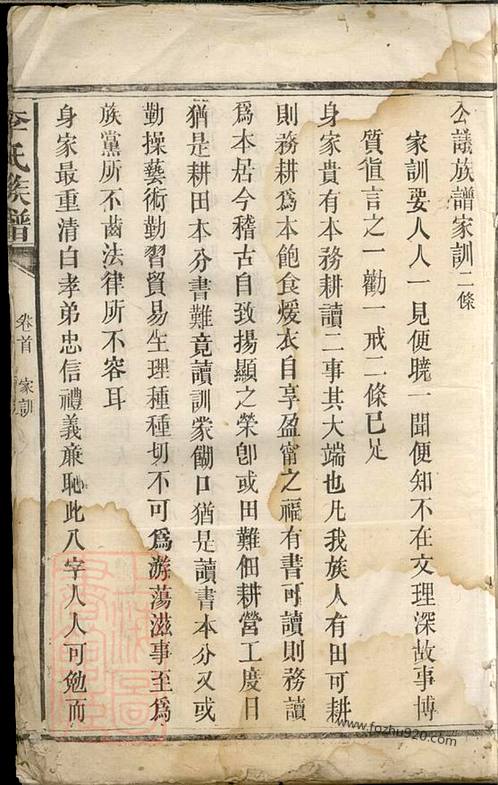 公議族譜家訓二條
家訓要人人一見便曉一聞便知不在文理深故事博
質直言之一勸一戒二條已足
身家貴有本務耕讀二事其大端也凡我族人有田可耕
則務耕爲本飽食煖衣自享盈甯之福有書可讀則務讀
爲本居今稽古自致揚顯之榮卽或田難佃耕營工度日
猶是耕田本分書難竟讀訓蒙餬口猶是讀書本分又或
勤操藝術勤習貿易生理種種切不可爲游蕩滋事至爲
族黨所不齒法律所不容耳
身家最重清白孝弟忠信禮義廉恥此八字人人可勉而
李氏族譜
卷首
家訓
www.fozhu920.com